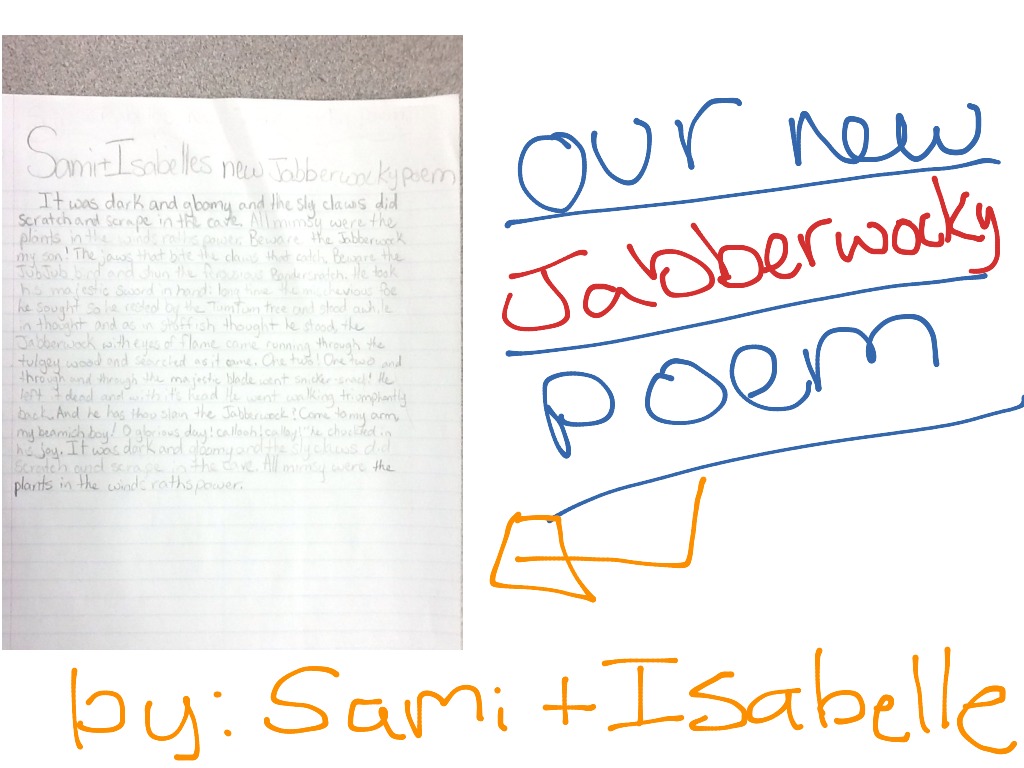 Sami+Isabelles new Jabberwocky poem
It was dark and gloomy and the sly claws did
scratch and scrape in the cave. All mimsy were the
plants in the winds raths power. Beware the Jabberwock
my son! The jaws that bite the claws that catch. Beware the
JubJub bird and shun the Bandersnatch. He took
his majestic sword in hand: long time the mischevious foe
he sought so he rested by the TumTum tree and stood awhile
in thought and as in stoffish thought he stood, the
Jabberwock with eyes of flame came running through the
tulgey wood and searched as it came. One two! One two and
through and through the majestic blade went snicker-snack! He
left it dead and with it's head He went walking triomphantly
back. And he has thou slain the Jabberwock? Come to my arm,
my beamish boy! O glorious day! callooh! callay! he chuckled in
his joy. It was dark and gloomy and the sly claws did
scratch and scrape in the cave. All mimsy were the
plants in the winds raths power.
our new
Jabberwocky
poem
by: Sami + Isabelle